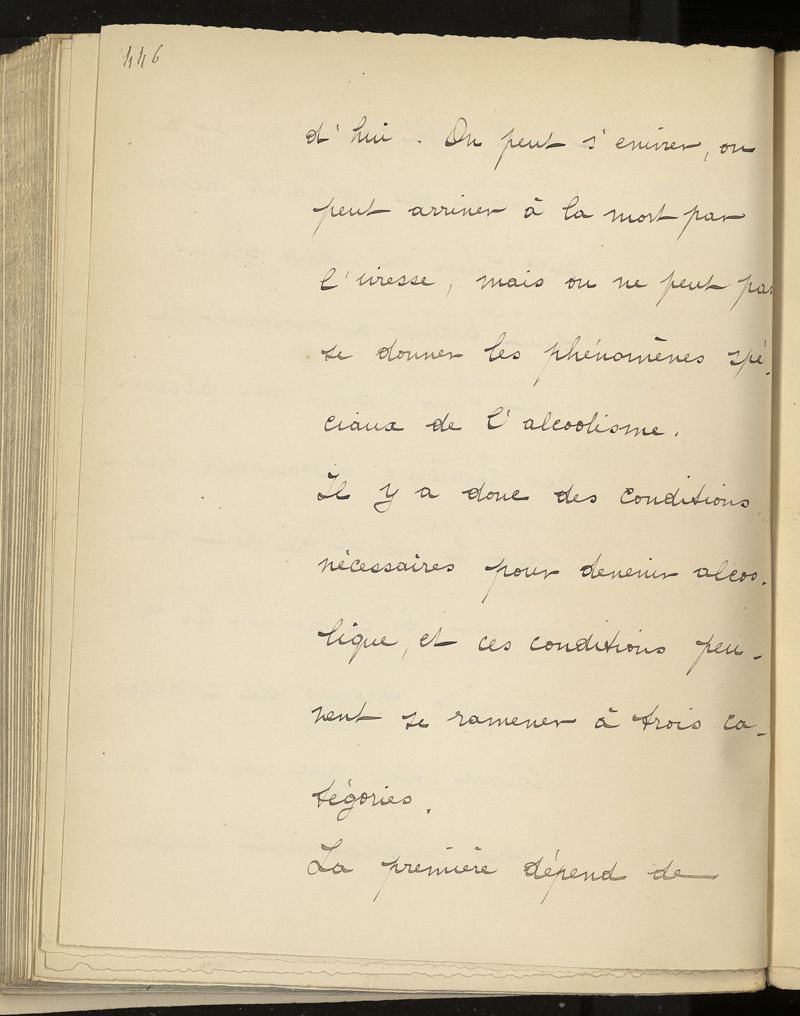 446
d'hui. On peut s'enivrer, on
peut arriver à la mort par
l'ivresse, mais on ne peut pas
se donner les phénomènes spé-
ciaux de l'alcoolisme.
Il y a donc des conditions
nécessaires pour devenir alcoo-
lique, et ces conditions peu-
vent se ramener à trois ca-
tégories.
La première dépend de